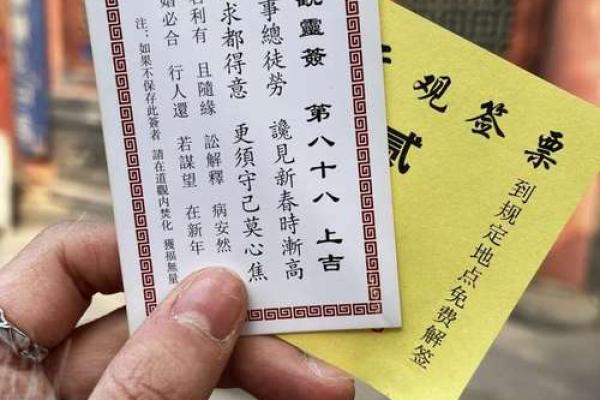 觀靈簽 第八十八 上吉
事總徒勞 讒見新春時漸高
求都得意 更須守己莫心焦
名利有 且隨緣 訟解釋 病安然
婚必合 行人還 若謀望 在新年
注：如果不保存此簽者 請在道觀内焚化 獲福無量
观签票
贰
到规定地点免费解签